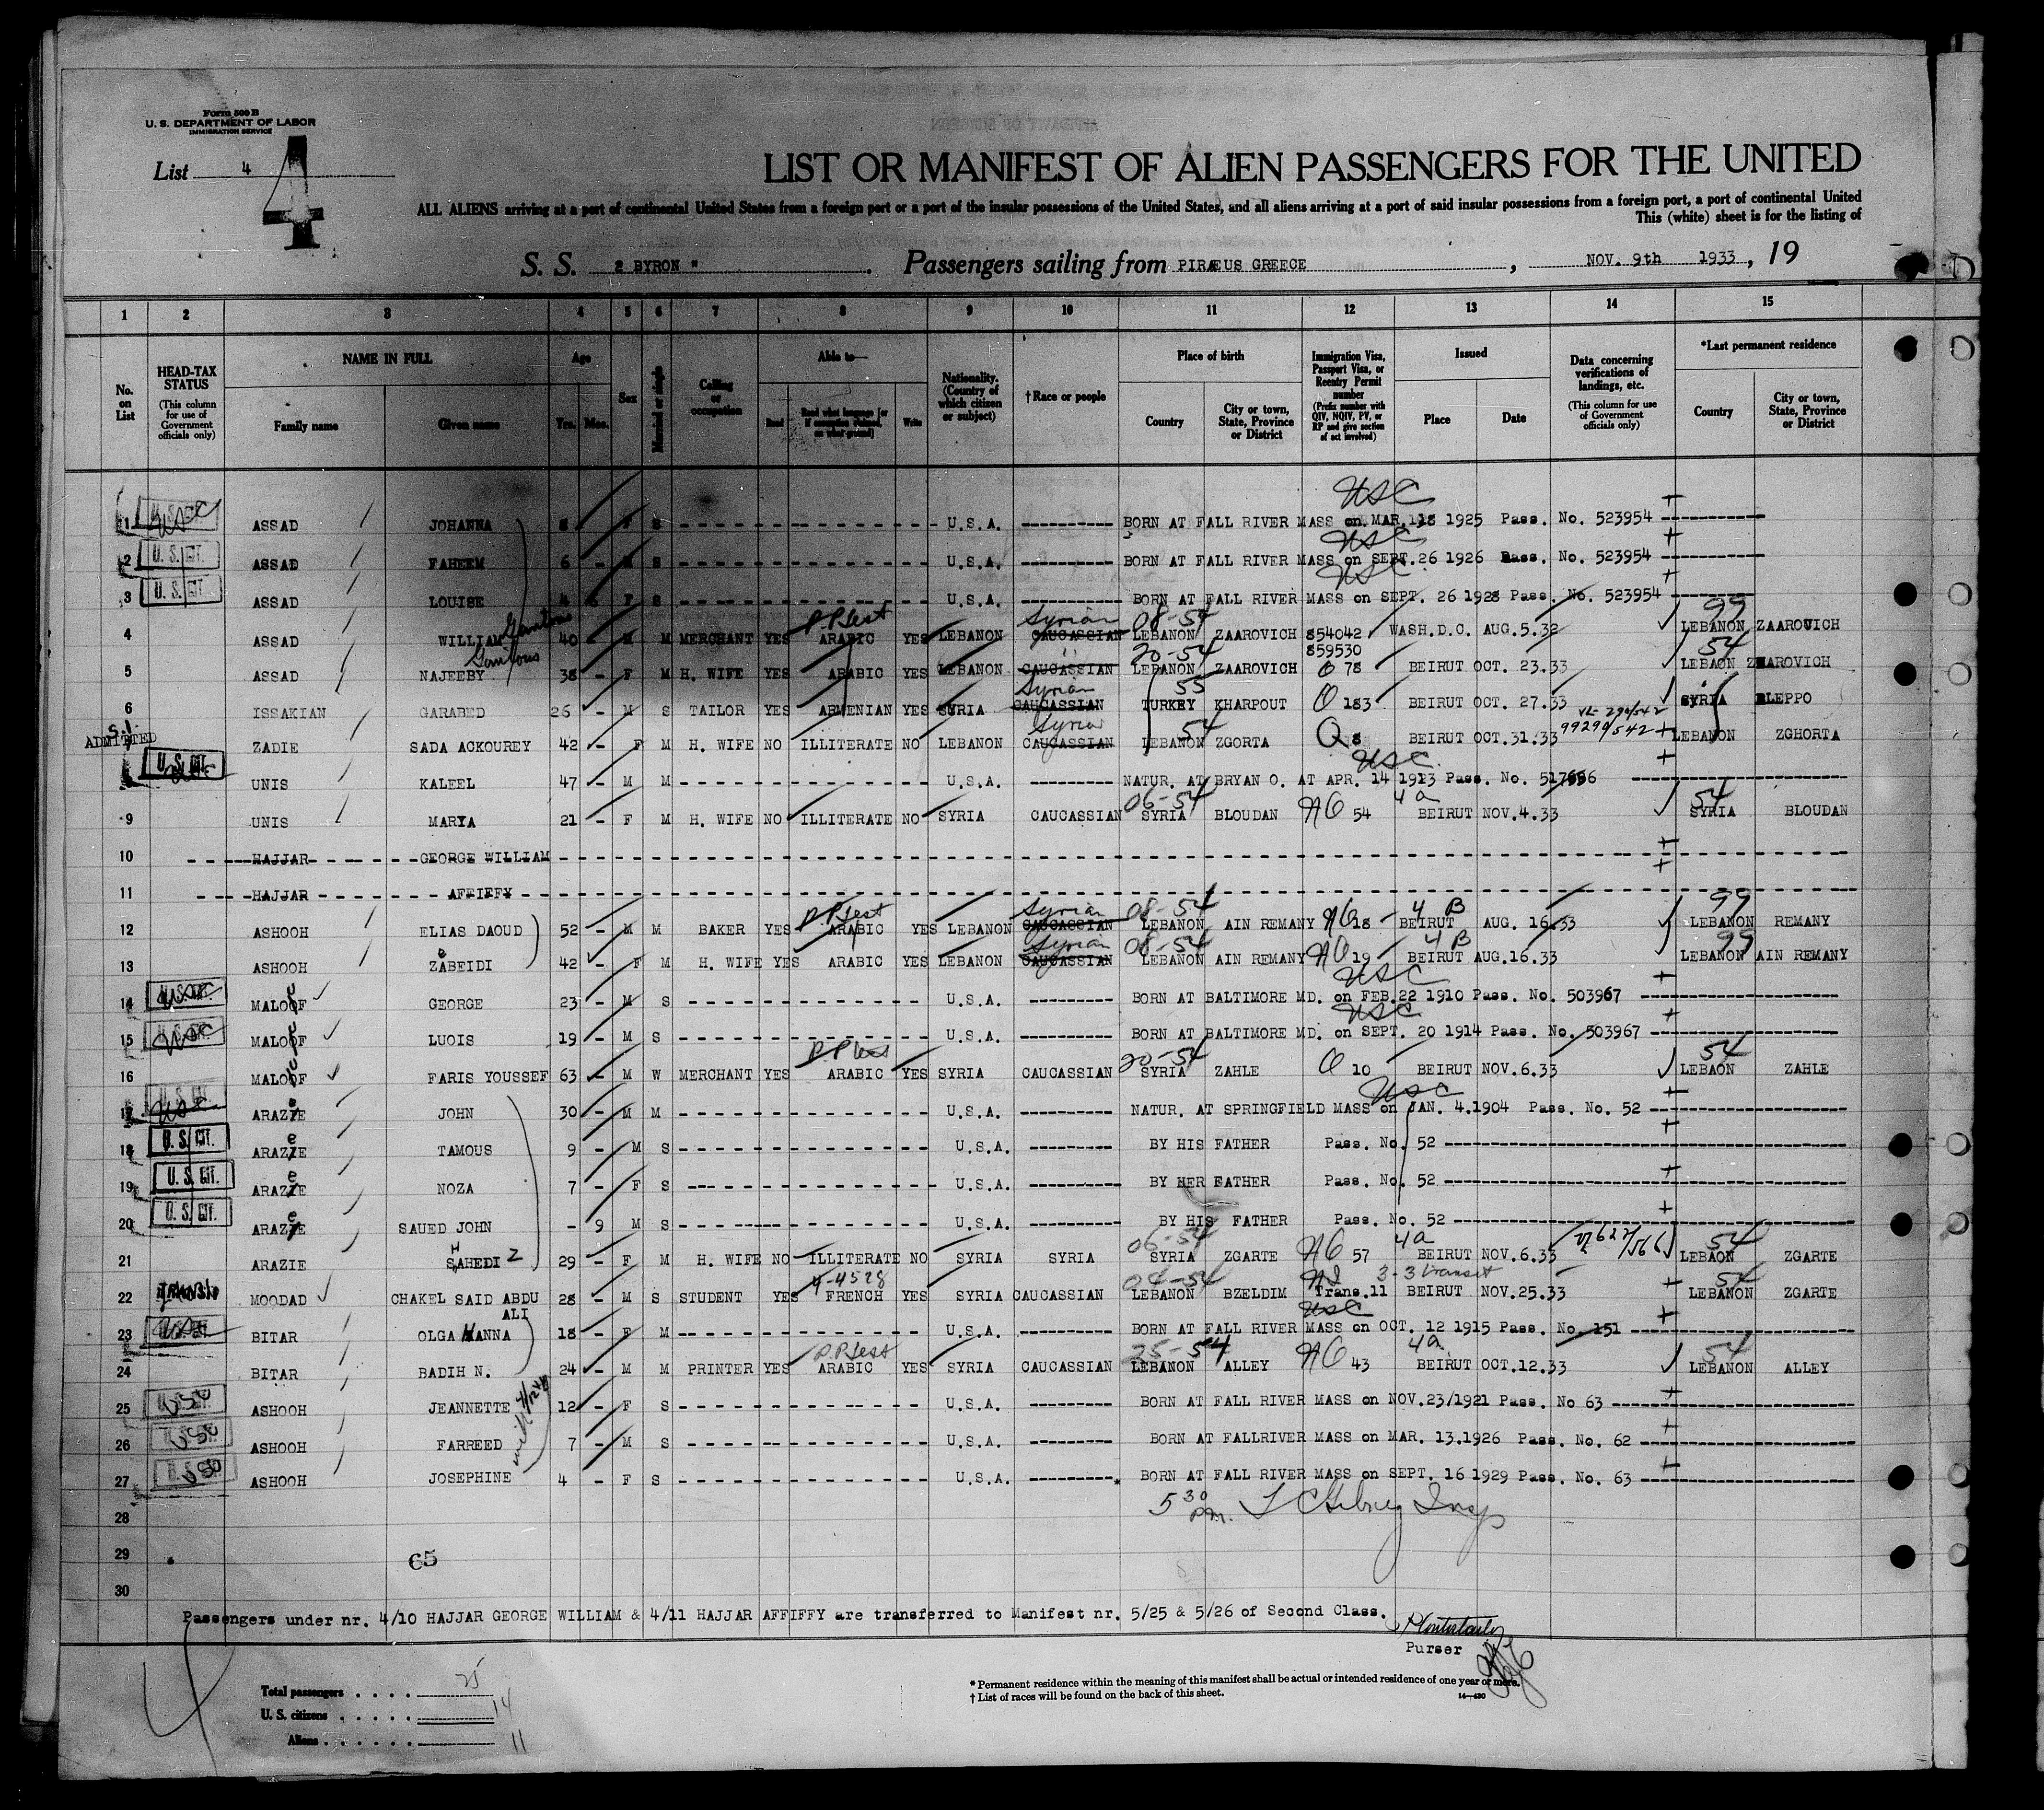 Form 500 B
U. S. DEPARTMENT OF LABOR
IMMIGRATION SERVICE
List 4
4
LIST OR MANIFEST OF ALIEN PASSENGERS FOR THE UNITED
ALL ALIENS arriving at a port of continental United States from a foreign port or a port of the insular possessions of the United States, and all aliens arriving at a port of said insular possessions from a foreign port, a port of continental United
This (white) sheet is for the listing of
S. S. " BYRON " Passengers sailing from PIRÆUS GREECE, NOV. 9th 1933, 19
1 2 3 4 5 6 7 8 9 10 11 12 13 14 15
No. on List
HEAD-TAX STATUS (This column for use of Government officials only)
NAME IN FULL Family name Given name
Age Yrs. Mos.
Sex
Married or single
Calling or occupation
Able to— Read Read what language [or if exemption claimed, on what ground] Write
Nationality. (Country of which citizen or subject)
† Race or people
Place of birth Country City or town, State, Province or District
Immigration Visa, Passport Visa, or Reentry Permit number (Prefix number with QIV, NQIV, PV, or RP and give section of act involved)
Issued Place Date
Data concerning verifications of landings, etc. (This column for use of Government officials only)
*Last permanent residence Country City or town, State, Province or District
1 USC ASSAD JOHANNA 8 F S U.S.A. BORN AT FALL RIVER MASS on MAR. 1925 Pass. No. 523954 USC
2 U.S. CIT. ASSAD FAHEEM 6 - M S U.S.A. BORN AT FALL RIVER MASS on SEPT. 26 1926 Pass. No. 523954 USC
3 U.S. CIT. ASSAD LOUISE 4 F S U.S.A. BORN AT FALL RIVER MASS on SEPT. 26 1928 Pass. No. 523954 USC
4 ASSAD WILLIAM Ganitous 40 M M MERCHANT YES P.P.test ARABIC YES LEBANON Syrian CAUCASSIAN 08-54 LEBANON ZAAROVICH 854042 WASH.D.C. AUG.5.32 99 LEBANON ZAAROVICH
859530
5 ASSAD NAJEEBY Ganitous 38 - F M H. WIFE YES ARABIC YES LEBANON " CAUCASSIAN 20-54 LEBANON ZAAROVICH Q 78 BEIRUT OCT. 23.33 54 LEBAON ZAAROVICH
6 ISSAKIAN GARABED 26 - M S TAILOR YES ARMENIAN YES SYRIA Syrian CAUCASSIAN 55 TURKEY KHARPOUT Q 183 BEIRUT OCT. 27.33 SYRIA ALEPPO
S.I. ADMITTED ZADIE SADA ACKOUREY 42 - F M H. WIFE NO ILLITERATE NO LEBANON Syrian CAUCASSIAN 54 LEBANON ZGORTA Q 8 BEIRUT OCT.31.33 99290/542 LEBANON ZGHORTA
U.S. CIT. UNIS KALEEL 47 - M M U.S.A. NATUR. AT BRYAN O. AT APR. 14 1913 Pass. No. USC
9 UNIS MARYA 21 - F M H. WIFE NO ILLITERATE NO SYRIA CAUCASSIAN 06-54 SYRIA BLOUDAN NQ 54 4a BEIRUT NOV.4.33 54 SYRIA BLOUDAN
10 HAJJAR GEORGE WILLIAM
11 HAJJAR AFEIEFY
12 ASHOOH ELIAS DAOUD 52 - M M BAKER YES P.P.test ARABIC YES LEBANON Syrian CAUCASSIAN 08-54 LEBANON AIN REMANY NQ 18 4 B BEIRUT AUG. 16.33 99 LEBANON REMANY
13 ASHOOH ZABEIDI 42 - F M H. WIFE YES ARABIC YES LEBANON Syrian CAUCASSIAN 08-54 LEBANON AIN REMANY NQ 19 4 B BEIRUT AUG.16.33 99 LEBANON AIN REMANY
14 U.S. CIT. MALOOF GEORGE 23 - M S U.S.A. BORN AT BALTIMORE MD. on FEB.22 1910 Pass. No. 503967 USC
15 USC MALOOF LUOIS 19 - M S U.S.A. BORN AT BALTIMORE MD. on SEPT. 20 1914 Pass. No. 503967 USC
16 MALOOF FARIS YOUSSEF 63 - M W MERCHANT YES P.P.test ARABIC YES SYRIA CAUCASSIAN 20-54 SYRIA ZAHLE Q 10 BEIRUT NOV.6.33 54 LEBAON ZAHLE
17 USC ARAZIE JOHN 30 - M M U.S.A. NATUR. AT SPRINGFIELD MASS on JAN. 4.1904 Pass. No. 52 USC
18 U.S. CIT. ARAZIE TAMOUS 9 - M S U.S.A. BY HIS FATHER Pass. No. 52
19 U.S. CIT. ARAZIE NOZA 7 - F S U.S.A. BY HER FATHER Pass. No. 52
20 U.S. CIT. ARAZIE SAUED JOHN - 9 M S U.S.A. BY HIS FATHER Pass. No. 52
21 ARAZIE SAHEDI 29 - F M H. WIFE NO ILLITERATE NO SYRIA SYRIA 06-54 SYRIA ZGARTE NQ 57 4a BEIRUT NOV.6.33 54 LEBAON ZGARTE
22 TRANSIT MOODAD CHAKEL SAID ABDU ALI 28 - M S STUDENT YES 4-4528 FRENCH YES SYRIA CAUCASSIAN 04-54 LEBANON BZELDIM Trans.11 3-3 transit BEIRUT NOV.25.33 54 LEBANON ZGARTE
23 USC BITAR OLGA HANNA 18 - F M U.S.A. BORN AT FALL RIVER MASS on OCT. 12 1915 Pass. No. 151 USC
24 BITAR BADIH N. 24 - M M PRINTER YES P.P.test ARABIC YES SYRIA CAUCASSIAN 25-54 LEBANON ALLEY NQ 43 4a BEIRUT OCT.12.33 54 LEBANON ALLEY
25 USC ASHOOH JEANNETTE 12 - F S U.S.A. BORN AT FALL RIVER MASS on NOV.23/1921 Pass. No 63
26 USC ASHOOH FARREED 7 - M S U.S.A. BORN AT FALLRIVER MASS on MAR. 13.1926 Pass. No. 62
27 USC ASHOOH JOSEPHINE 4 - F S U.S.A. BORN AT FALL RIVER MASS on SEPT. 16 1929 Pass. No. 63
28 5 30 P.M. Insp
29 65
30
Passengers under nr. 4/10 HAJJAR GEORGE WILLIAM & 4/11 HAJJAR AFFIFFY are transferred to Manifest nr. 5/25 & 5/26 of Second Class.
Purser
Total passengers . . . . 25
U. S. citizens . . . . . 14
Aliens . . . . . . 11
* Permanent residence within the meaning of this manifest shall be actual or intended residence of one year or more.
† List of races will be found on the back of this sheet.
14—430